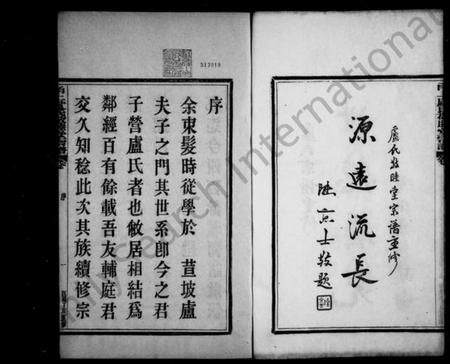 盧氏敦睦堂宗譜重修
源遠流長
士敬題
序
余束髮時從學於 荁坡盧
夫子之門其世系卽今之君
子營盧氏者也敏居相結爲
鄰經百有餘載吾友輔庭君
交久知稔此次其族續修宗
序
313018
Search International